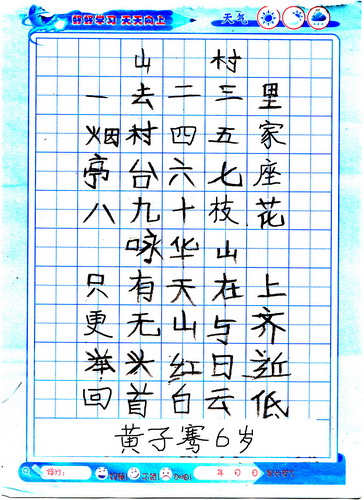 好好学习 天天向上
天气
山 村
一 去 二 三 里
烟 村 四 五 家
亭 台 六 七 座
八 九 十 枝 花
咏 华 山
只 有 天 在 上
更 无 山 与 齐
举 头 红 日 近
回 首 白 云 低
黄子骞6岁
年 月 日